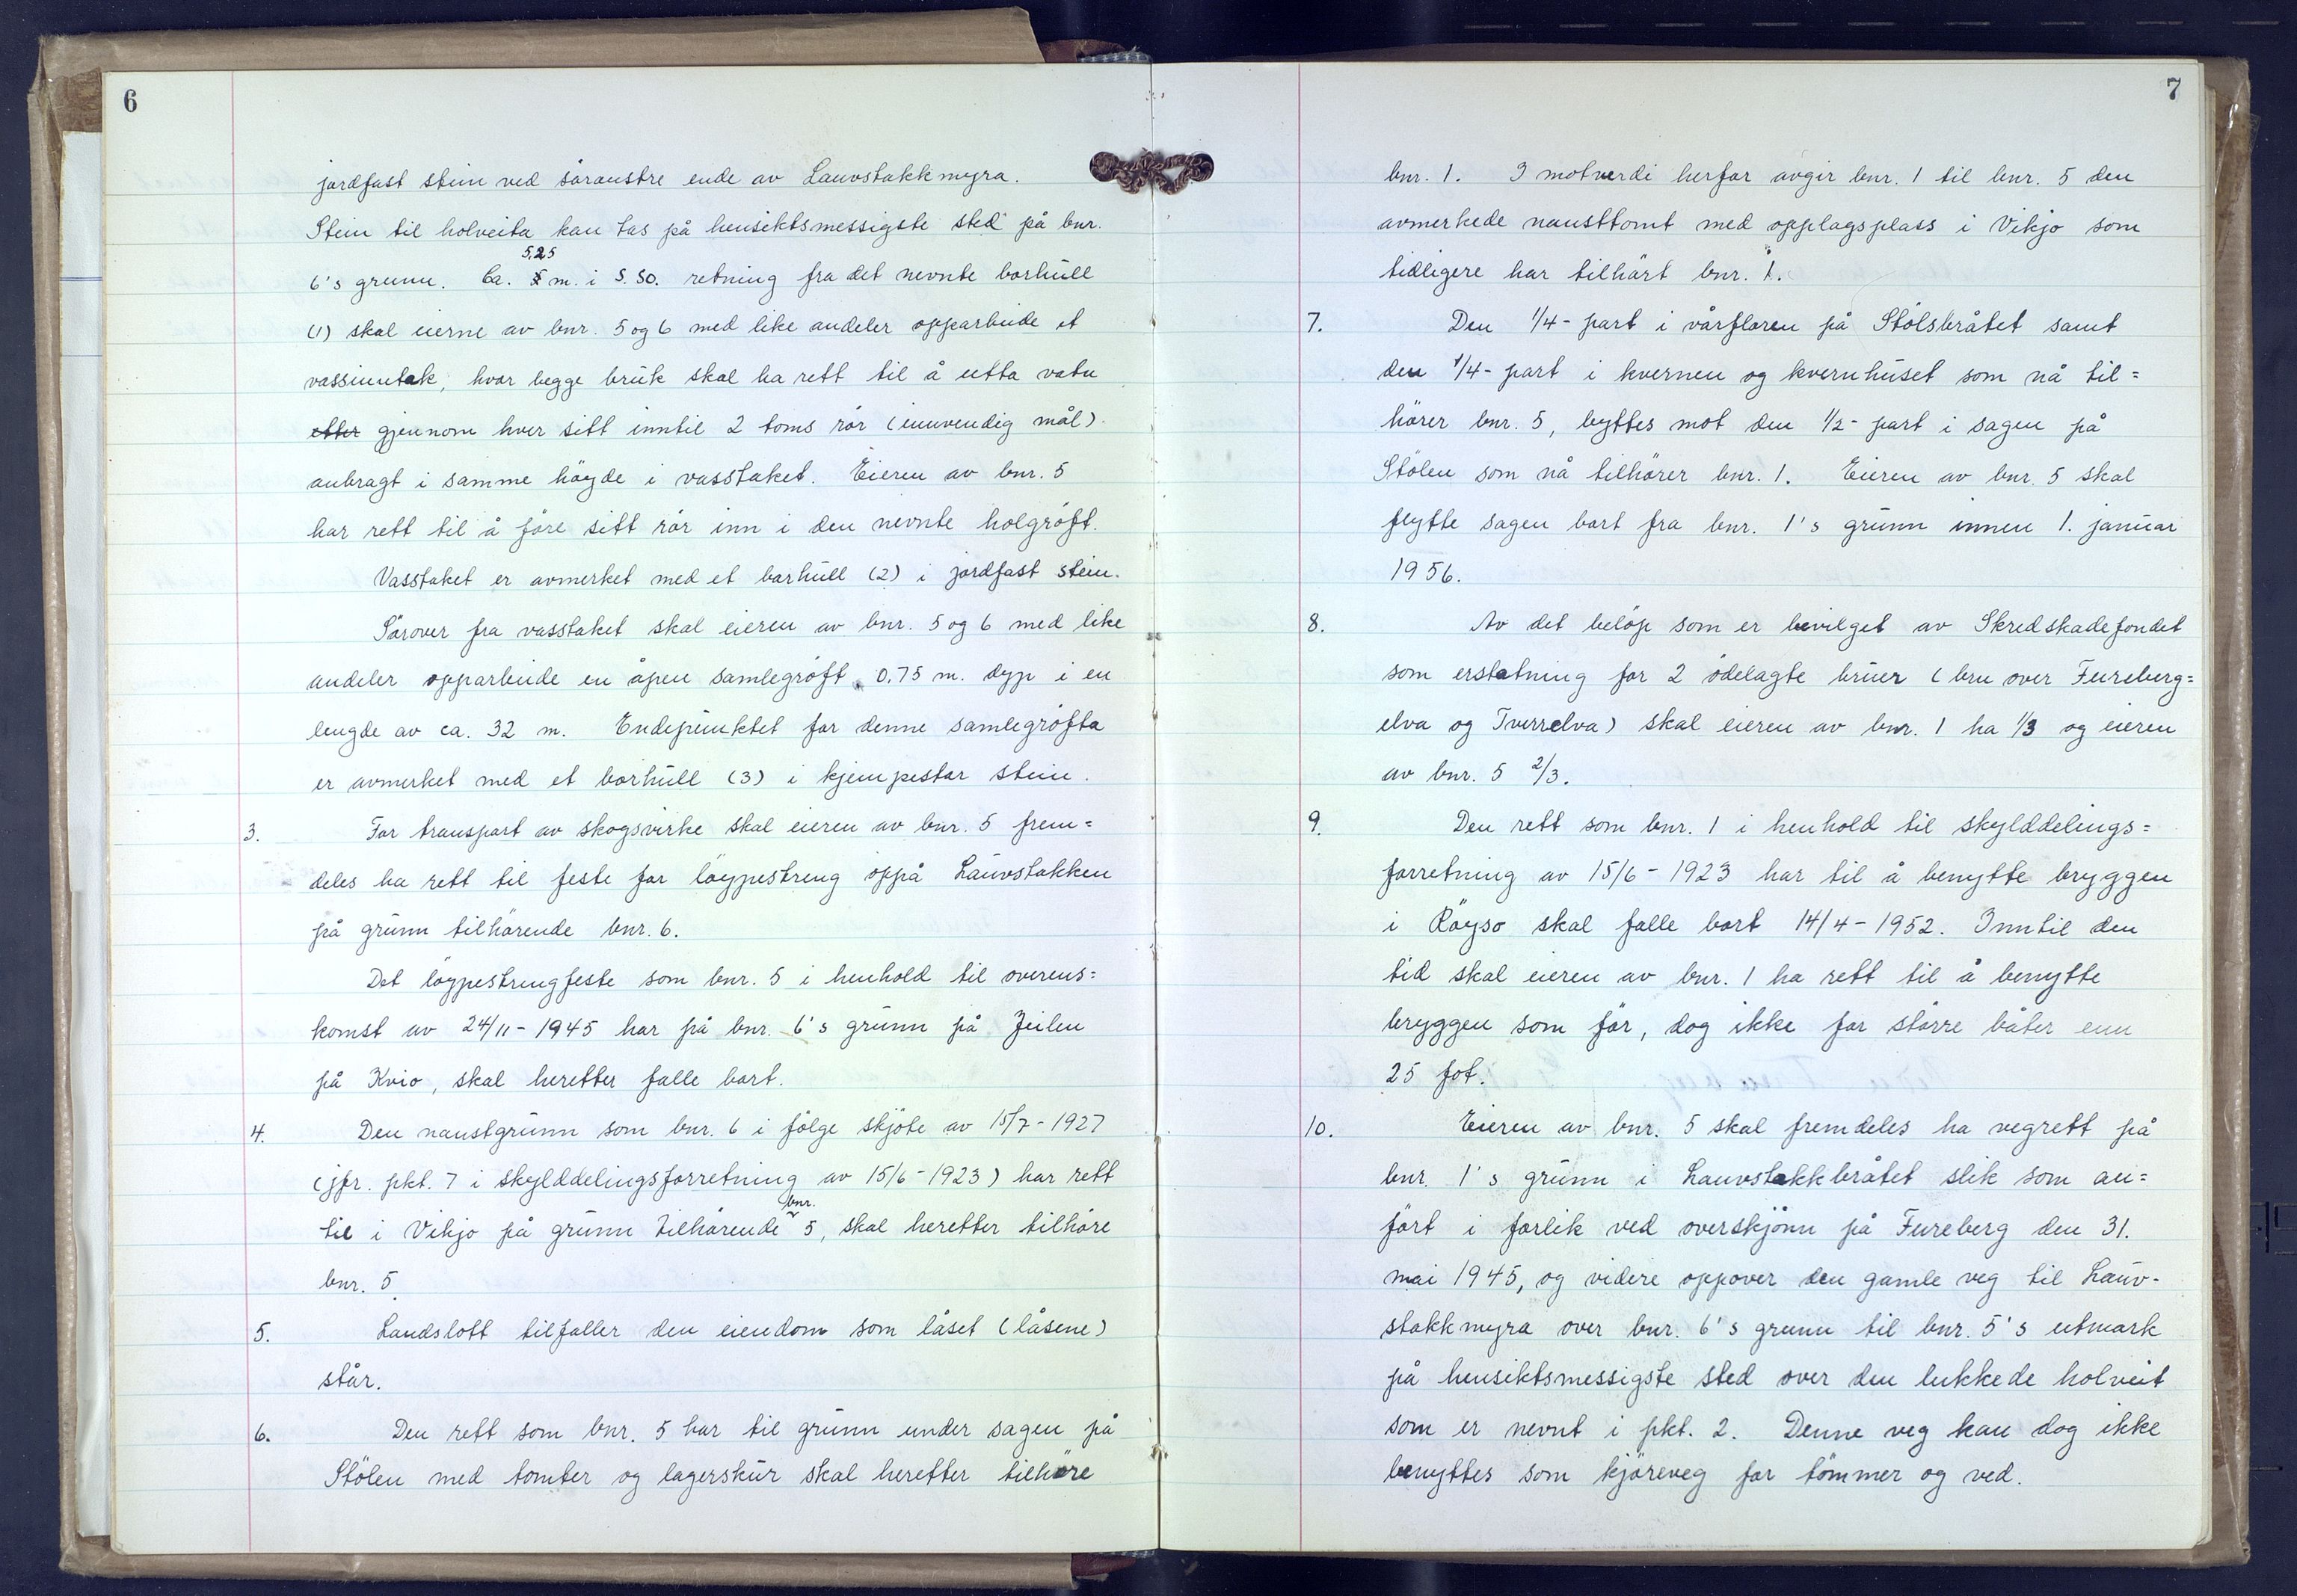 6
jordfast stein ved söraustre ende av Lauvstakkmyra.
Stein til holveita kan tas på hensiktsmessigste sted på bnr.
5,25
6's grunn. Ca. 5 m. i S. SO. retning fra det nevnte borhull
(1) skal eierne av bnr. 5 og 6 med like andeler opparbeide et
vassinntak, hvor begge bruk skal ha rett til å utta vatn
etter gjennom hver sitt inntil 2 toms rör (innvendig mål)
anbragt i samme höyde i vasstaket. Eieren av bnr. 5
har rett til å före sitt rör inn i den nevnte holgröft.
Vasstaket er avmerket med et borhull (2) i jordfast stein.
Sörover fra vasstaket skal eieren av bnr. 5 og 6 med like
andeler opparbeide en åpen samlegröft 0.75 m. dyp i en
lengde av ca. 32 m. Endepunktet for denne samlegröfta
er avmerket med et borhull (3) i kjempestor stein.
3. For transport av skogsvirke skal eieren av bnr. 5 frem=
deles ha rett til feste for löypestreng oppå Lauvstakken
på grunn tilhörende bnr. 6.
Det löypestrengfeste som bnr. 5 i henhold til overens=
komst av 24/11-1945 har på bnr. 6's grunn på Zeilen
på Kvio, skal heretter falle bort.
4. Den naustgrunn som bnr. 6 i fölge skjöte av 15/7-1927
(jfr. pkt. 7 i skylddelingsforretning av 15/6-1923) har rett
bnr.
til i Vikjo på grunn tilhörende 5, skal heretter tilhöre
bnr. 5.
5. Landslott tilfaller den eiendom som låset (låsene)
står.
6. Den rett som bnr. 5 har til grunn under sagen på
Stölen med tomter og lagerskur skal heretter tilhöre
7
bnr. 1. I motverdi herfor avgir bnr. 1 til bnr. 5 den
avmerkede nausttomt med opplagsplass i Vikjo som
tidligere har tilhört bnr. 1.
7. Den 1/4-part i vårfloren på Stölsbråtet samt
den 1/4-part i kvernen og kvernhuset som nå til=
hörer bnr. 5, byttes mot den 1/2-part i sagen på
Stölen som nå tilhörer bnr. 1. Eieren av bnr. 5 skal
flytte sagen bort fra bnr. 1's grunn innen 1. januar
1956.
8. Av det belöp som er bevilget av Skredskadefondet
som erstatning for 2 ödelagte bruer (bru over Fureberg=
elva og Tverrelva) skal eieren av bnr. 1 ha 1/3 og eieren
av bnr. 5 2/3.
9. Den rett som bnr. 1 i henhold til skylddelings=
forretning av 15/6-1923 har til å benytte bryggen
i Röyso skal falle bort 14/4-1952. Inntil den
tid skal eieren av bnr. 1 ha rett til å benytte
bryggen som för, dog ikke for större båter enn
25 fot.
10. Eieren av bnr. 5 skal fremdeles ha vegrett på
bnr. 1's grunn i Lauvstakkbråtet slik som an=
fört i forlik ved overskjönn på Fureberg den 31.
mai 1945, og videre oppover den gamle veg til Lauv-
stakkmyra over bnr. 6's grunn til bnr. 5's utmark
på hensiktsmessigste sted over den lukkede holveit
som er nevnt i pkt. 2. Denne veg kan dog ikke
benyttes som kjöreveg for tömmer og ved.